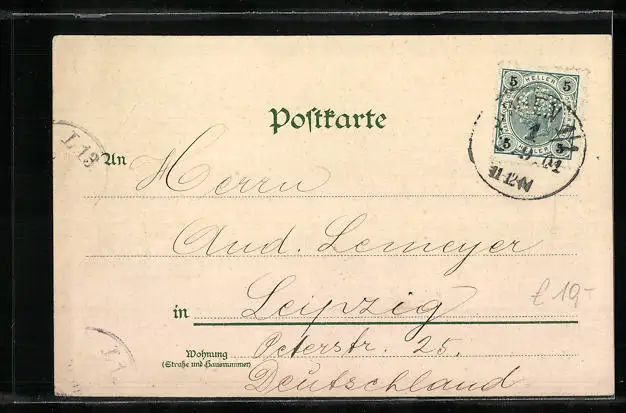 Postkarte
5 HELLER 5
5 HELLER 5
L 13
WIEN 1/1
1
9. 01
11-12
An Herrn
Aud. Lemeyer
in Leipzig
€ 19,-
Wohnung Peterstr. 25.
(Straße und Hausnummer)
Deutschland